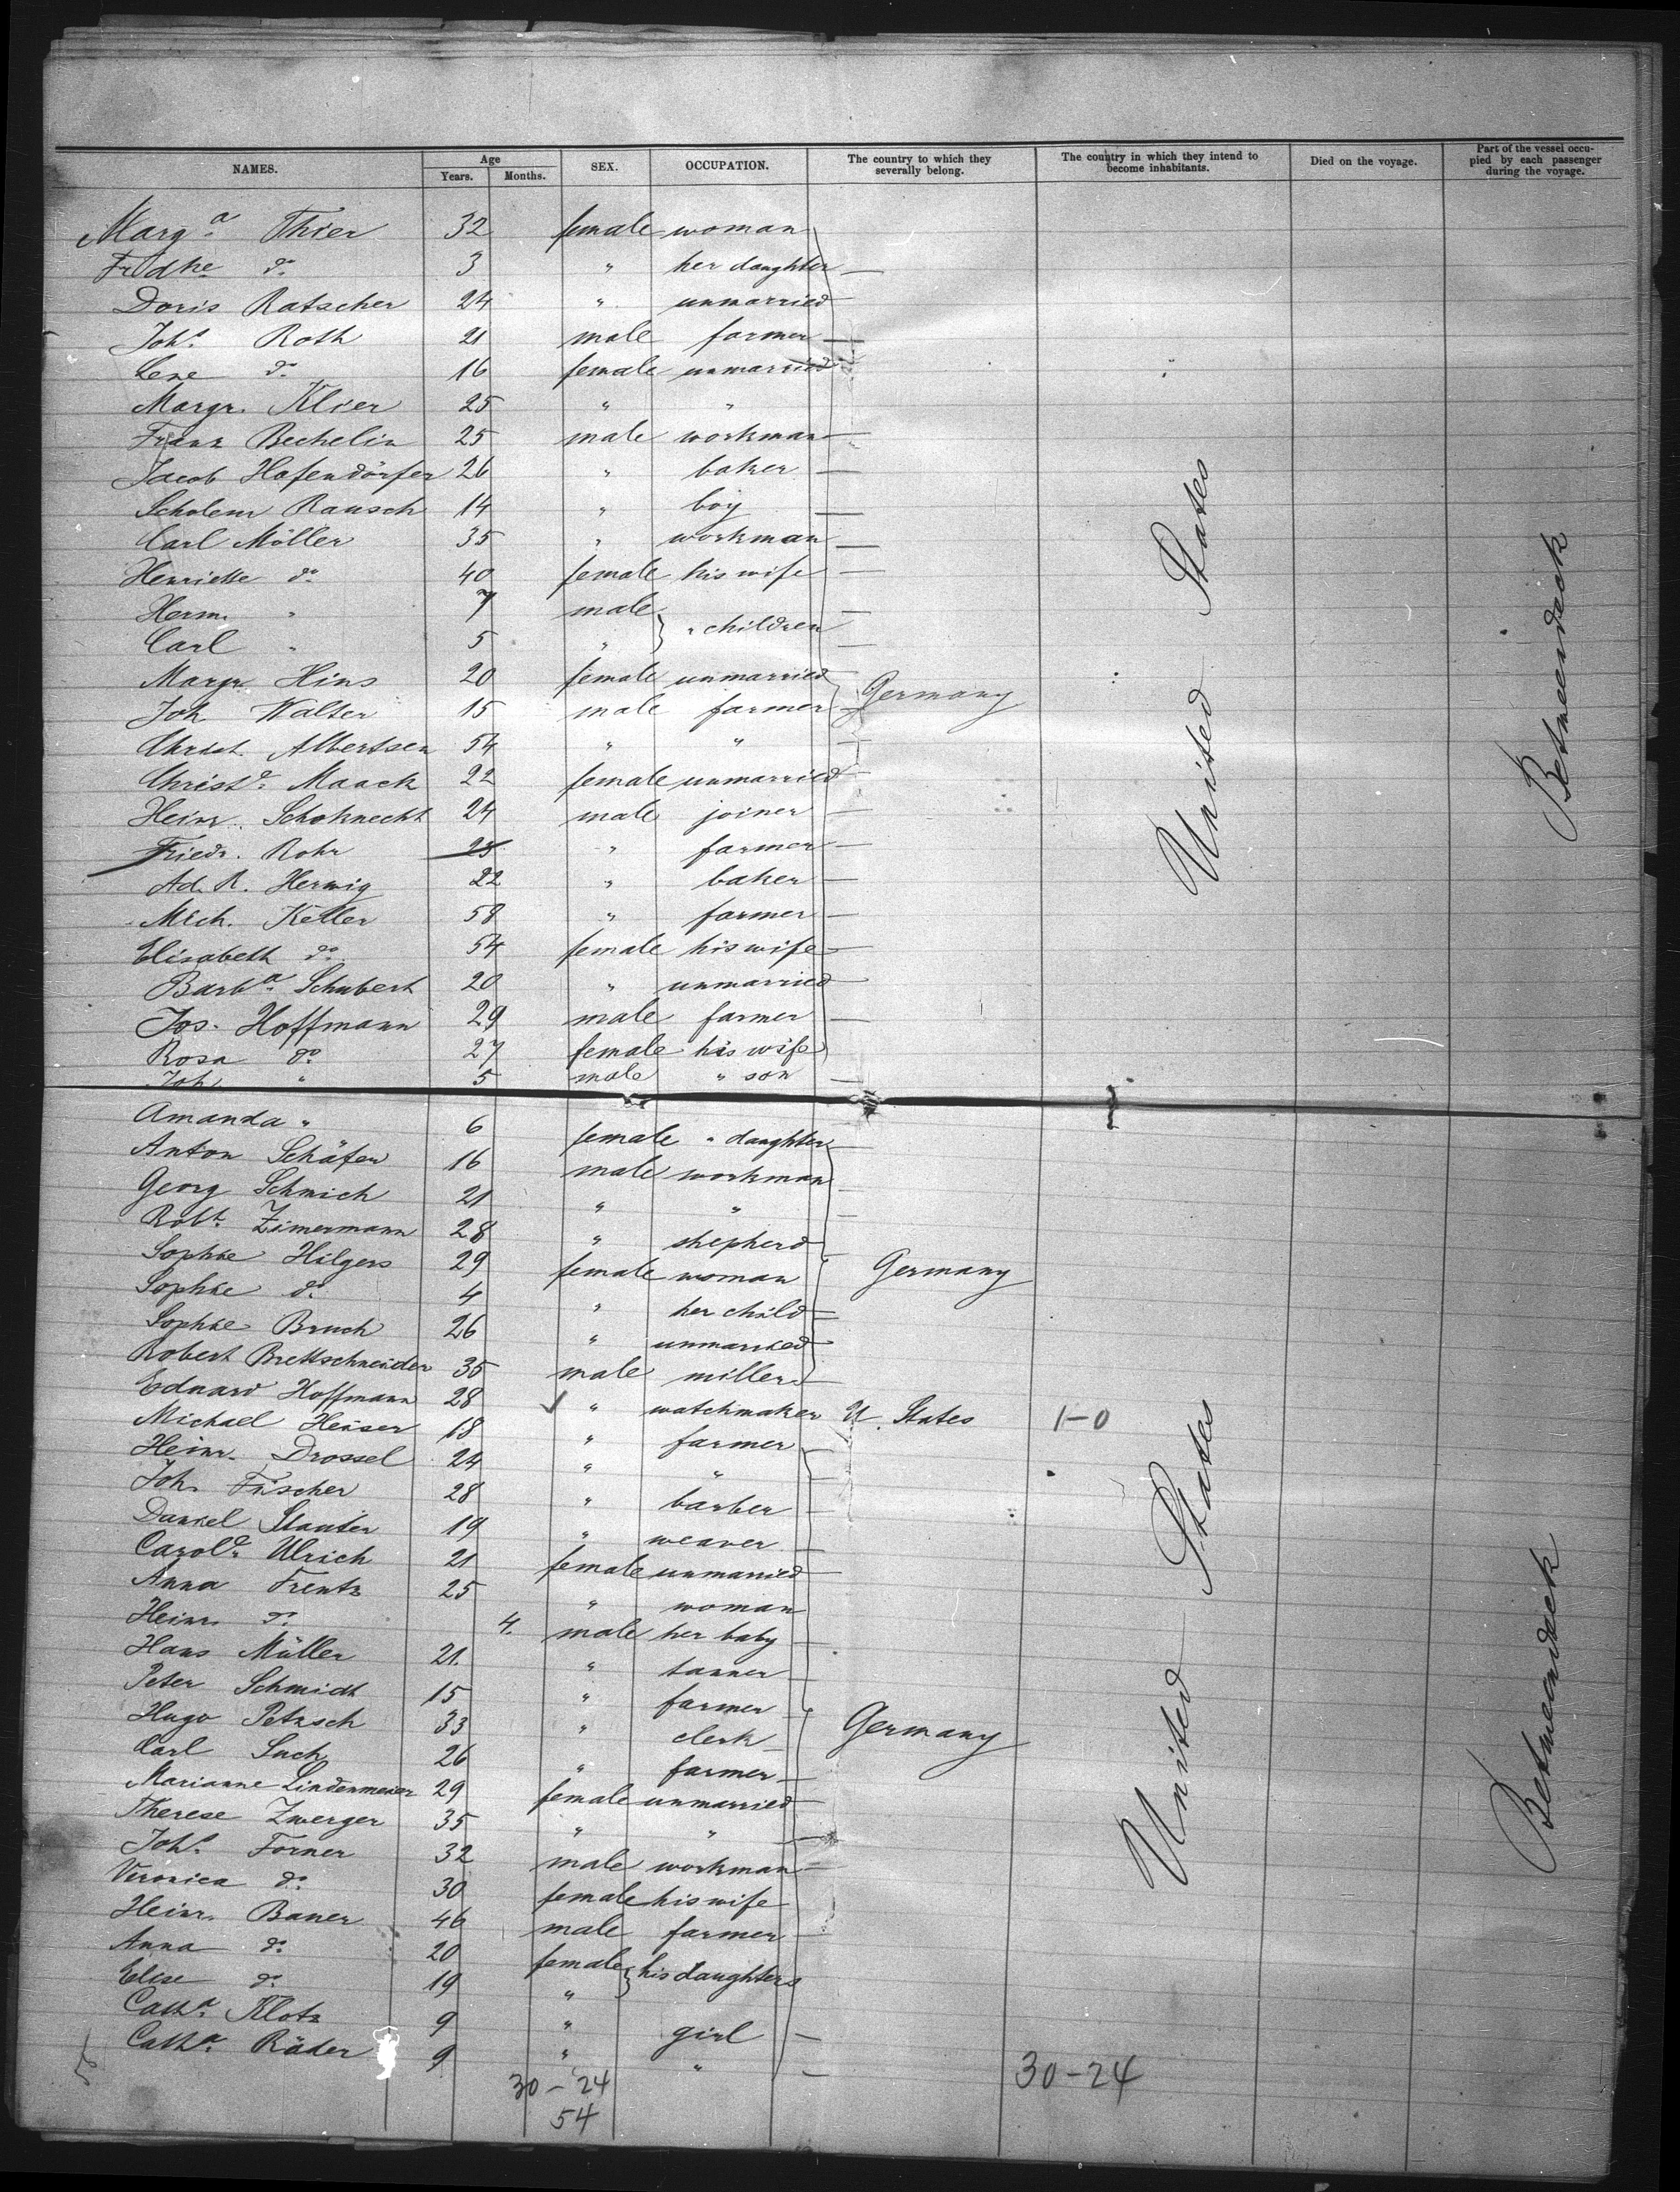 NAMES. Age Years. Months. SEX. OCCUPATION. The country to which they severally belong. The country in which they intend to become inhabitants. Died on the voyage. Part of the vessel occupied by each passenger during the voyage.
Marg.a Thier 32 female woman
Fridke do. 3 " her daughter
Doris Ratscher 24 " unmarried
Joh.s Roth 21 male farmer
Lene do. 16 female unmarried
Margr. Klier 25 " "
Franz Bechelin 25 male workman
Jacob Hafendörfer 26 " baker
Scholem Rausch 14 " boy
Carl Möller 35 " workman
Henriette do. 40 female his wife
Herm. " 7 male " children
Carl " 5 "
Margr. Hins 20 female unmarried Germany
Joh Walter 15 male farmer
Christ. Albertsen 54 " "
Christe. Maack 22 female unmarried
Heinr. Schoknecht 24 male joiner
Friedr. Rohr 25 " farmer
Ad. R. Herwig 22 " baker
Mich. Keller 58 " farmer
Elisabeth do. 54 female his wife
Barb.a Schubert 20 " unmarried
Jos. Hoffmann 29 male farmer
Rosa do. 27 female his wife
Joh. " 5 male " son
United States
Betweendeck
Amanda " 6 female " daughter
Anton Schäfer 16 male workman
Georg Schmich 21 " "
Robt. Zimermann 28 " shepherd
Sophie Hilgers 29 female woman Germany
Sophie do. 4 " her child
Sophie Bruch 26 " unmarried
Robert Brettschneider 35 male miller
Eduard Hoffmann 28 " watchmaker U. States 1-0
Michael Heiser 18 " farmer
Heinr. Drossel 24 " "
Joh. Fischer 28 " barber
Daniel Stauter 19 " weaver
Carole. Ulrich 21 female unmarried
Anna Frentz 25 " woman
Heinr. do. 4. male her baby
Hans Müller 21. " tanner
Peter Schmidt 15 " farmer
Hugo Petzsch 33 " clerk Germany
Carl Such 26 " farmer
Marianne Lindenmeier 29 female unmarried
Therese Zwerger 35 " "
Joh.s Forner 32 male workman
Veronica do. 30 female his wife
Heinr. Bauer 46 male farmer
Anna do. 20 female his daughters
Elise do. 19 "
Cath.a Klotz 9 " girl
Cath.a Räder 9 " "
United States
Betweendeck
30-24 30-24
54